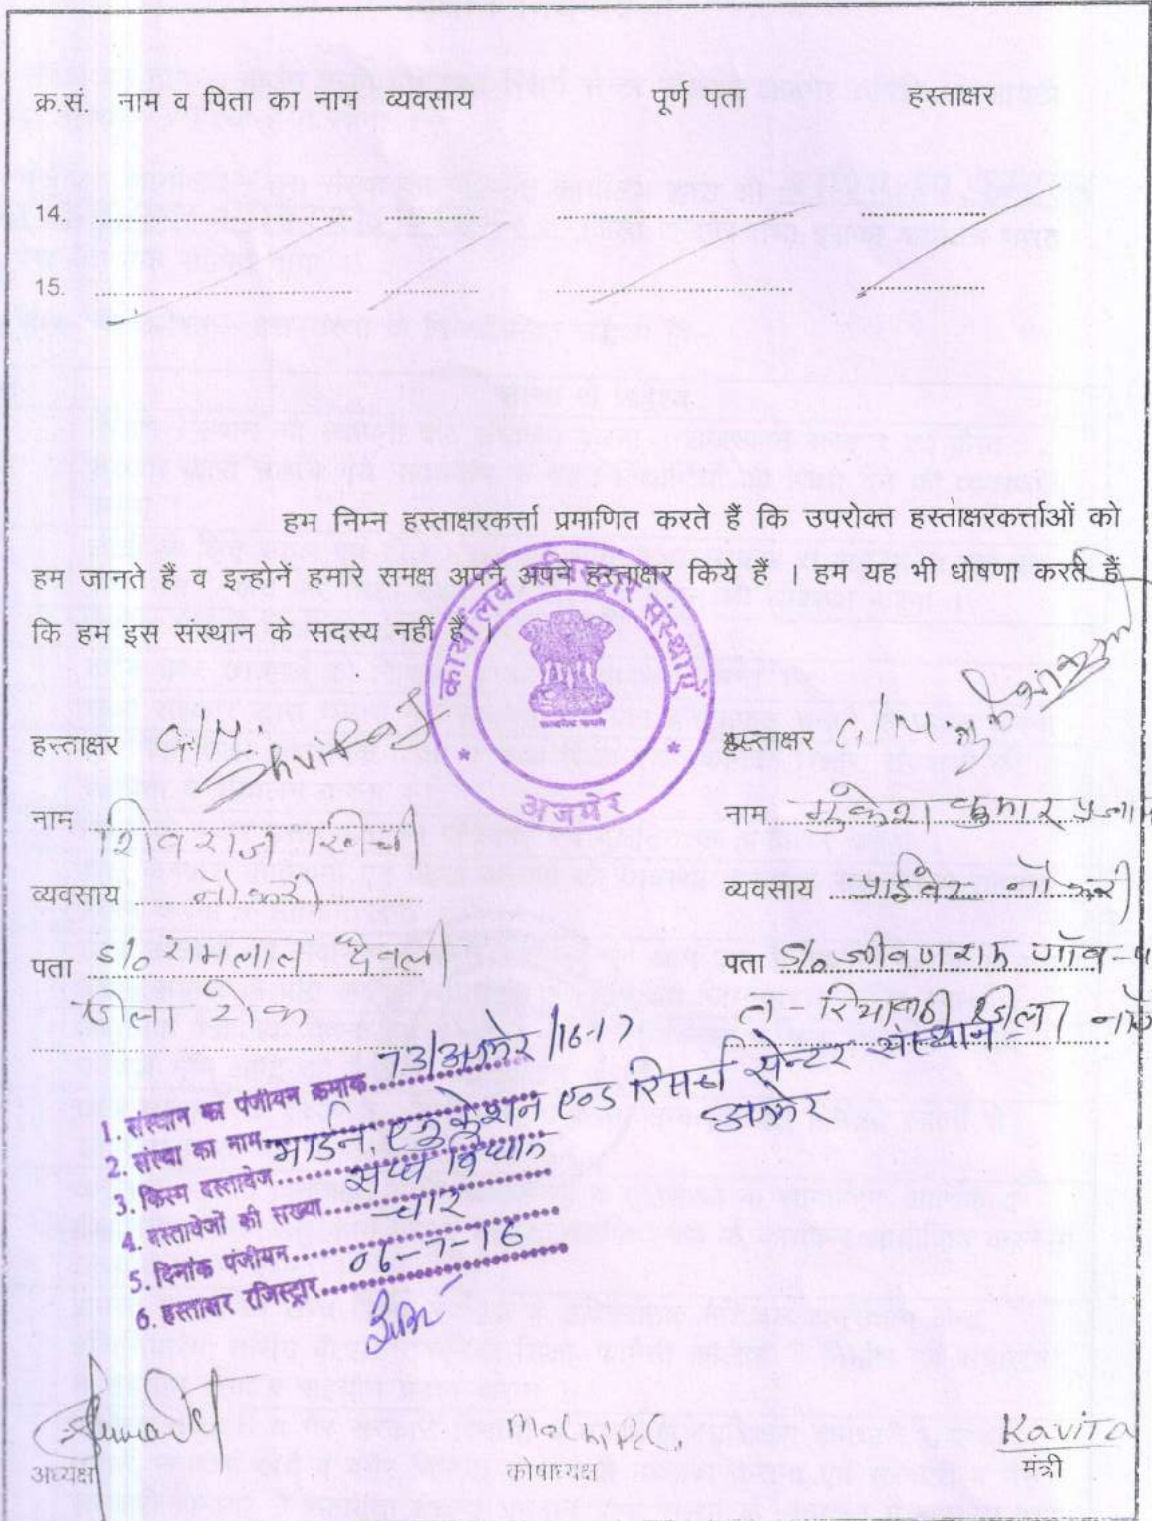 क्र.सं. नाम व पिता का नाम व्यवसाय पूर्ण पता हस्ताक्षर
14.
15.
हम निम्न हस्ताक्षरकर्त्ता प्रमाणित करते हैं कि उपरोक्त हस्ताक्षरकर्त्ताओं को
हम जानते हैं व इन्होनें हमारे समक्ष अपने अपने हस्ताक्षर किये हैं । हम यह भी धोषणा करते हैं
कि हम इस संस्थान के सदस्य नहीं हैं ।
कार्यालय रजिस्ट्रार संस्थाएँ
अजमेर
हस्ताक्षर Shivraj
हस्ताक्षर
नाम शिवराज खिची
नाम मुकेश कुमार
व्यवसाय नोकरी
व्यवसाय प्राईवेट नोकरी
पता S/o रामलाल देवली
जिला टोंक
पता S/o जीवणराम गाँव-
त - रियाबड़ी जिला
1. संस्थान का पंजीयन क्रमांक 73/अजमेर/16-17
2. संस्था का नाम मार्डन एजुकेशन एण्ड रिसर्च सेन्टर संस्थान
अजमेर
3. किस्म दस्तावेज संघ विधान
4. दस्तावेजों की संख्या चार
5. दिनांक पंजीयन 06-7-16
6. हस्ताक्षर रजिस्ट्रार
अध्यक्ष
कोषाध्यक्ष
Kavita
मंत्री